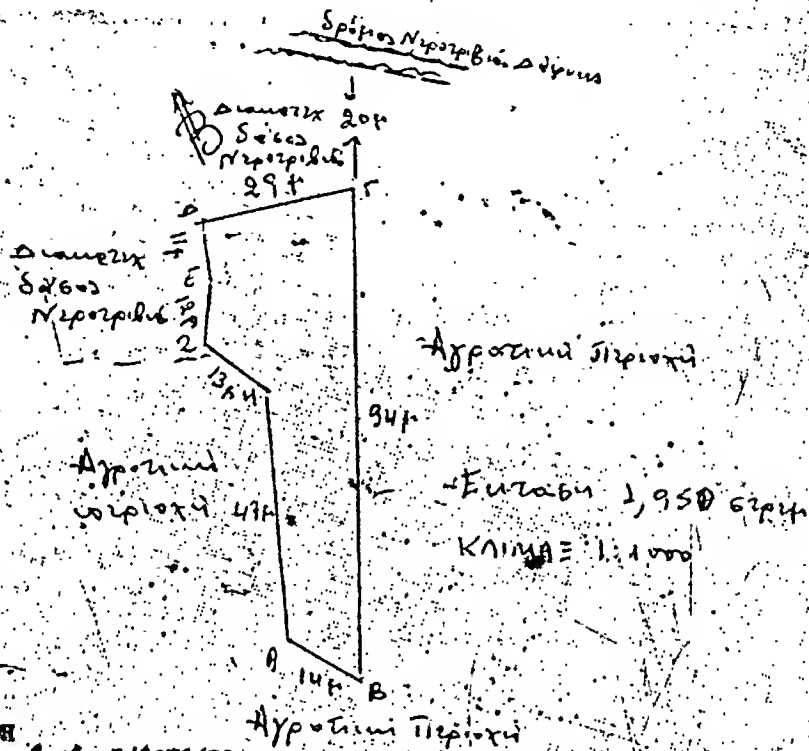 δρόμος Νεροτριβιάς Δάφνης
Β
Διακατεχ 20μ
δάσος
Νεροτριβιά
29μ
Δ Γ
11μ
Διακατεχ
δάσος Ε
Νεροτριβιά
Ζ
13μ Η
Αγροτική Περιοχή
94μ
Αγροτική
περιοχή 47μ
Έκταση 1,950 στρεμ
ΚΛΙΜΑΞ 1:1000
Α 14μ Β
Αγροτική Περιοχή